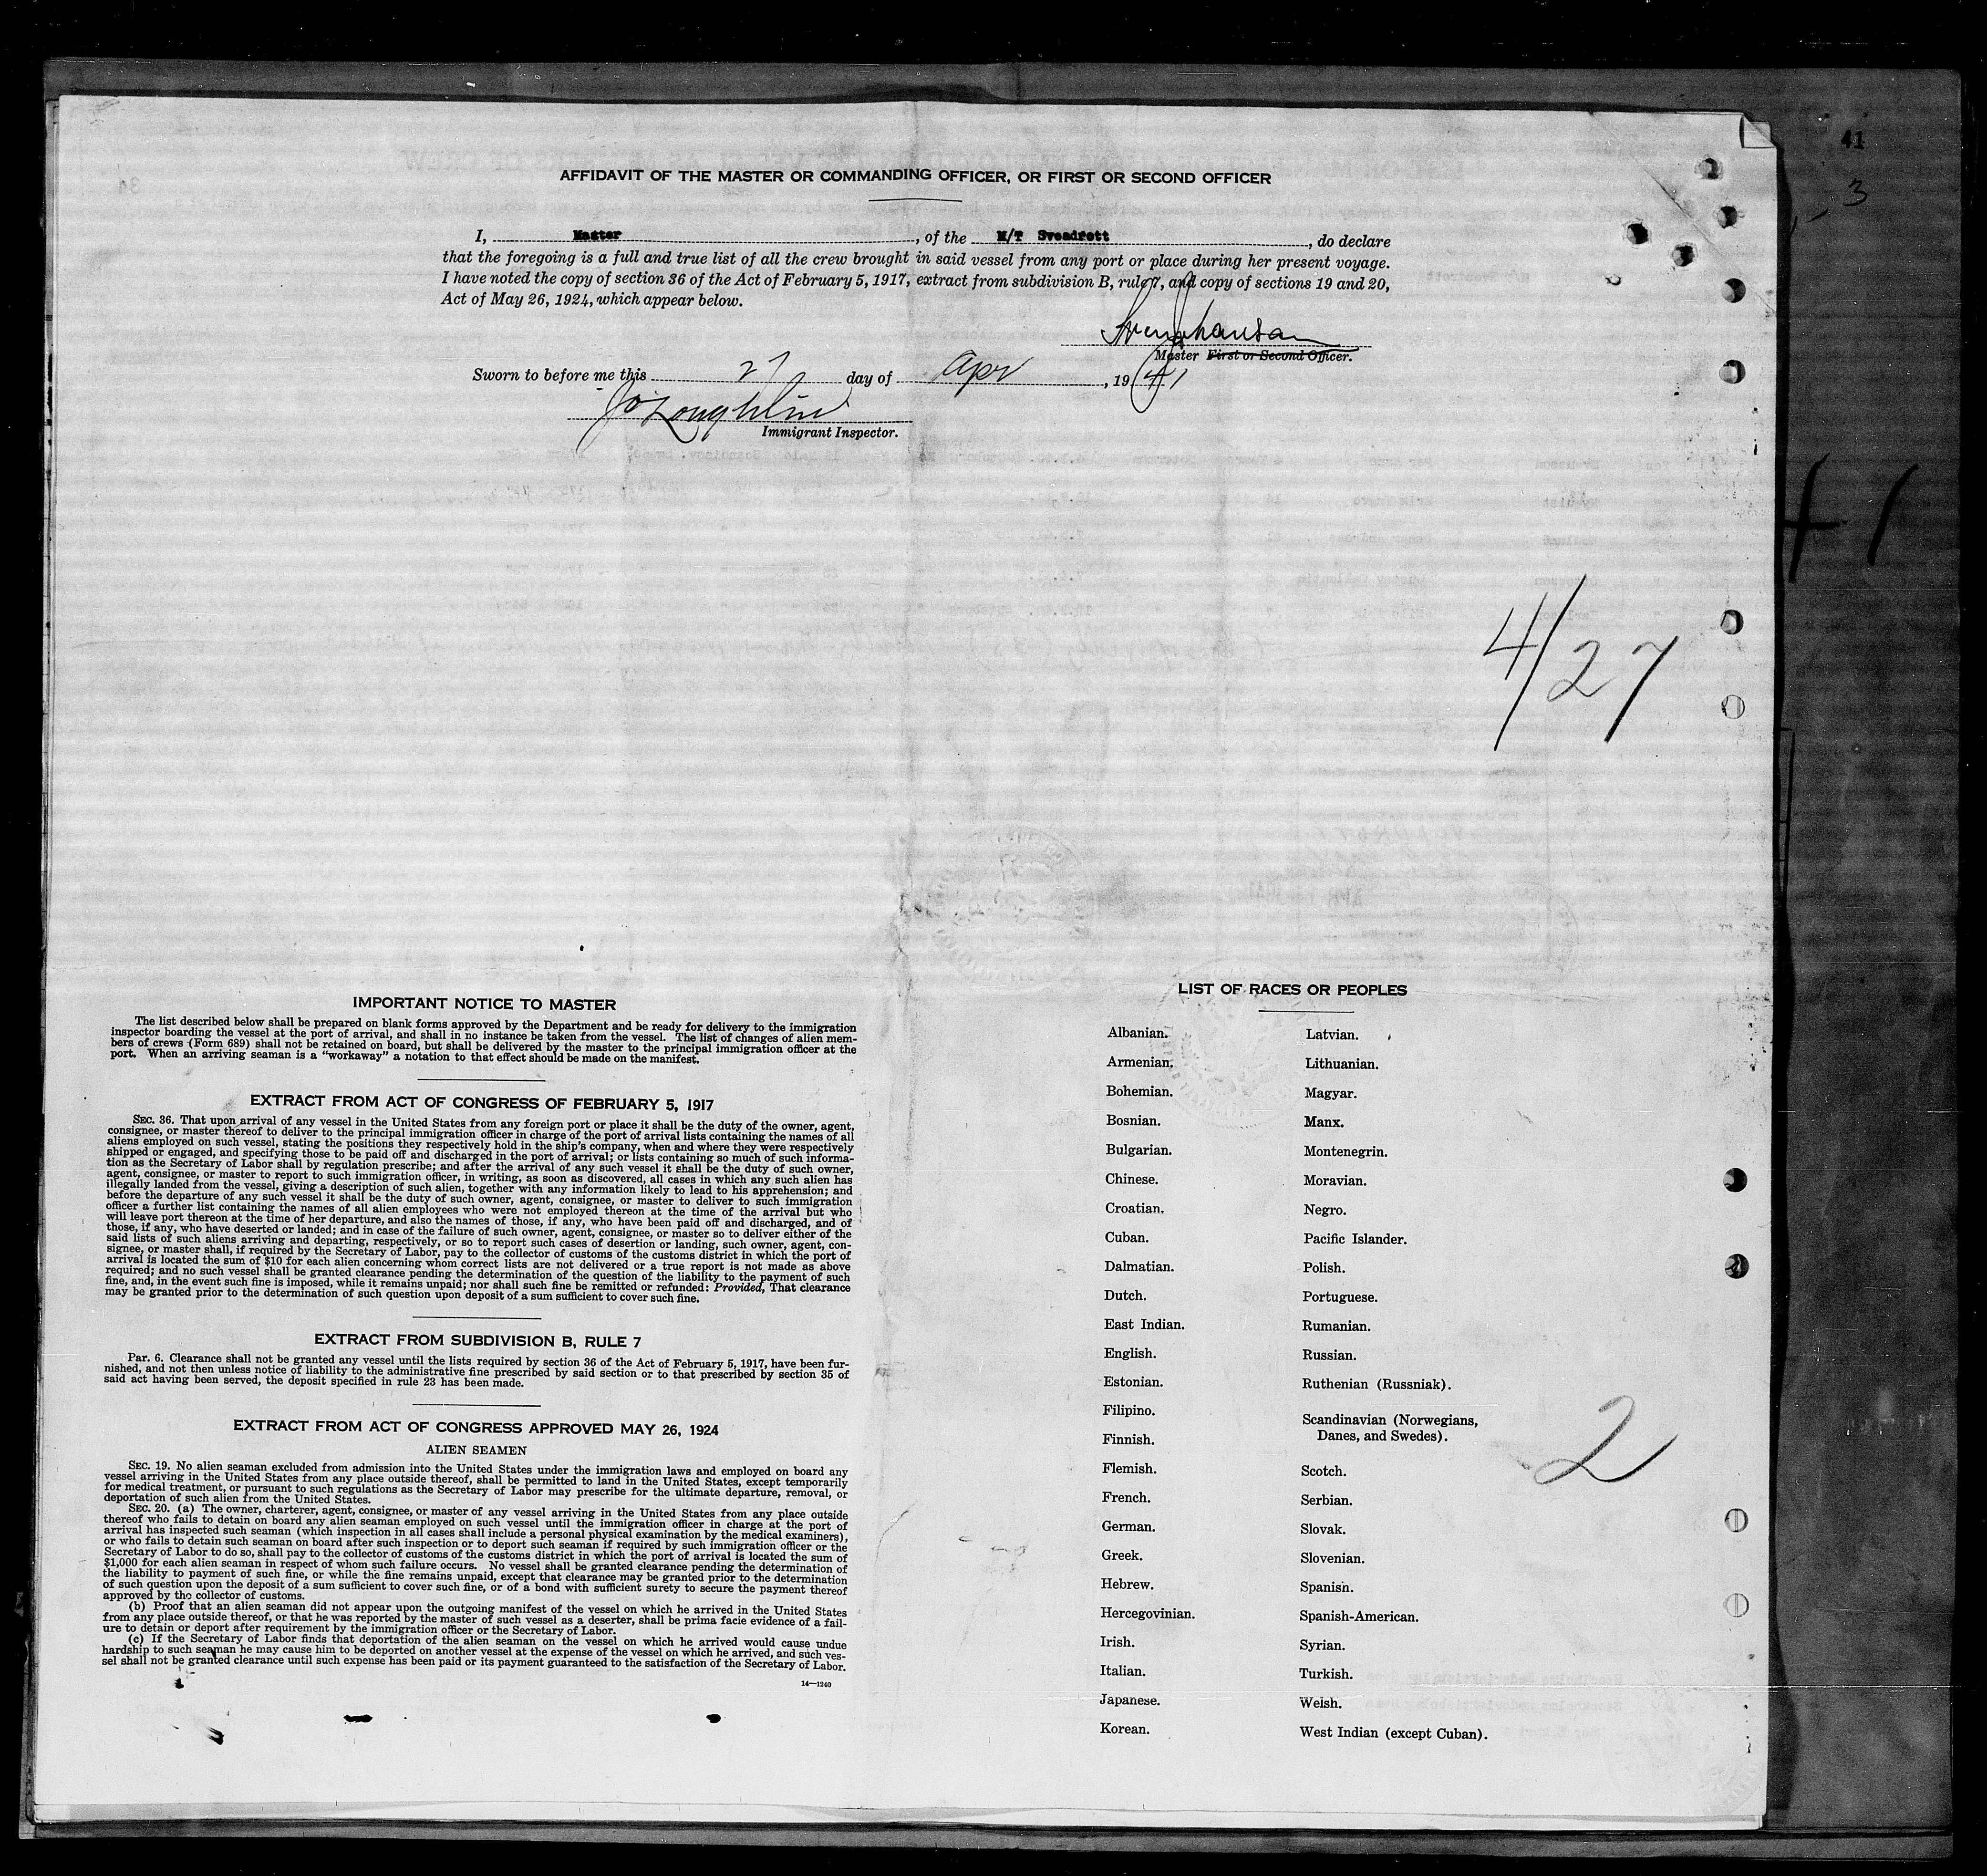 41
3
AFFIDAVIT OF THE MASTER OR COMMANDING OFFICER, OR FIRST OR SECOND OFFICER
I, Master, of the M/T Sveadrott, do declare
that the foregoing is a full and true list of all the crew brought in said vessel from any port or place during her present voyage.
I have noted the copy of section 36 of the Act of February 5, 1917, extract from subdivision B, rule 7, and copy of sections 19 and 20,
Act of May 26, 1924, which appear below.
Master First or Second Officer.
Sworn to before me this 27 day of Apr, 1941
JO'Loughlin
Immigrant Inspector.
41
4/27
IMPORTANT NOTICE TO MASTER
The list described below shall be prepared on blank forms approved by the Department and be ready for delivery to the immigration
inspector boarding the vessel at the port of arrival, and shall in no instance be taken from the vessel. The list of changes of alien mem-
bers of crews (Form 689) shall not be retained on board, but shall be delivered by the master to the principal immigration officer at the
port. When an arriving seaman is a "workaway" a notation to that effect should be made on the manifest.
EXTRACT FROM ACT OF CONGRESS OF FEBRUARY 5, 1917
SEC. 36. That upon arrival of any vessel in the United States from any foreign port or place it shall be the duty of the owner, agent,
consignee, or master thereof to deliver to the principal immigration officer in charge of the port of arrival lists containing the names of all
aliens employed on such vessel, stating the positions they respectively hold in the ship's company, when and where they were respectively
shipped or engaged, and specifying those to be paid off and discharged in the port of arrival; or lists containing so much of such informa-
tion as the Secretary of Labor shall by regulation prescribe; and after the arrival of any such vessel it shall be the duty of such owner,
agent, consignee, or master to report to such immigration officer, in writing, as soon as discovered, all cases in which any such alien has
illegally landed from the vessel, giving a description of such alien, together with any information likely to lead to his apprehension; and
before the departure of any such vessel it shall be the duty of such owner, agent, consignee, or master to deliver to such immigration
officer a further list containing the names of all alien employees who were not employed thereon at the time of the arrival but who
will leave port thereon at the time of her departure, and also the names of those, if any, who have been paid off and discharged, and of
those, if any, who have deserted or landed; and in case of the failure of such owner, agent, consignee, or master so to deliver either of the
said lists of such aliens arriving and departing, respectively, or so to report such cases of desertion or landing, such owner, agent, con-
signee, or master shall, if required by the Secretary of Labor, pay to the collector of customs of the customs district in which the port of
arrival is located the sum of $10 for each alien concerning whom correct lists are not delivered or a true report is not made as above
required; and no such vessel shall be granted clearance pending the determination of the question of the liability to the payment of such
fine, and, in the event such fine is imposed, while it remains unpaid; nor shall such fine be remitted or refunded: Provided, That clearance
may be granted prior to the determination of such question upon deposit of a sum sufficient to cover such fine.
EXTRACT FROM SUBDIVISION B, RULE 7
PAR. 6. Clearance shall not be granted any vessel until the lists required by section 36 of the Act of February 5, 1917, have been fur-
nished, and not then unless notice of liability to the administrative fine prescribed by said section or to that prescribed by section 35 of
said act having been served, the deposit specified in rule 23 has been made.
EXTRACT FROM ACT OF CONGRESS APPROVED MAY 26, 1924
ALIEN SEAMEN
SEC. 19. No alien seaman excluded from admission into the United States under the immigration laws and employed on board any
vessel arriving in the United States from any place outside thereof, shall be permitted to land in the United States, except temporarily
for medical treatment, or pursuant to such regulations as the Secretary of Labor may prescribe for the ultimate departure, removal, or
deportation of such alien from the United States.
SEC. 20. (a) The owner, charterer, agent, consignee, or master of any vessel arriving in the United States from any place outside
thereof who fails to detain on board any alien seaman employed on such vessel until the immigration officer in charge at the port of
arrival has inspected such seaman (which inspection in all cases shall include a personal physical examination by the medical examiners),
or who fails to detain such seaman on board after such inspection or to deport such seaman if required by such immigration officer or the
Secretary of Labor to do so, shall pay to the collector of customs of the customs district in which the port of arrival is located the sum of
$1,000 for each alien seaman in respect of whom such failure occurs. No vessel shall be granted clearance pending the determination of
the liability to payment of such fine, or while the fine remains unpaid, except that clearance may be granted prior to the determination
of such question upon the deposit of a sum sufficient to cover such fine, or of a bond with sufficient surety to secure the payment thereof
approved by the collector of customs.
(b) Proof that an alien seaman did not appear upon the outgoing manifest of the vessel on which he arrived in the United States
from any place outside thereof, or that he was reported by the master of such vessel as a deserter, shall be prima facie evidence of a fail-
ure to detain or deport after requirement by the immigration officer or the Secretary of Labor.
(c) If the Secretary of Labor finds that deportation of the alien seaman on the vessel on which he arrived would cause undue
hardship to such seaman he may cause him to be deported on another vessel at the expense of the vessel on which he arrived, and such ves-
sel shall not be granted clearance until such expense has been paid or its payment guaranteed to the satisfaction of the Secretary of Labor.
14—1240
LIST OF RACES OR PEOPLES
Albanian.
Armenian.
Bohemian.
Bosnian.
Bulgarian.
Chinese.
Croatian.
Cuban.
Dalmatian.
Dutch.
East Indian.
English.
Estonian.
Filipino.
Finnish.
Flemish.
French.
German.
Greek.
Hebrew.
Hercegovinian.
Irish.
Italian.
Japanese.
Korean.
Latvian.
Lithuanian.
Magyar.
Manx.
Montenegrin.
Moravian.
Negro.
Pacific Islander.
Polish.
Portuguese.
Rumanian.
Russian.
Ruthenian (Russniak).
Scandinavian (Norwegians,
Danes, and Swedes).
Scotch.
Serbian.
Slovak.
Slovenian.
Spanish.
Spanish-American.
Syrian.
Turkish.
Welsh.
West Indian (except Cuban).
2